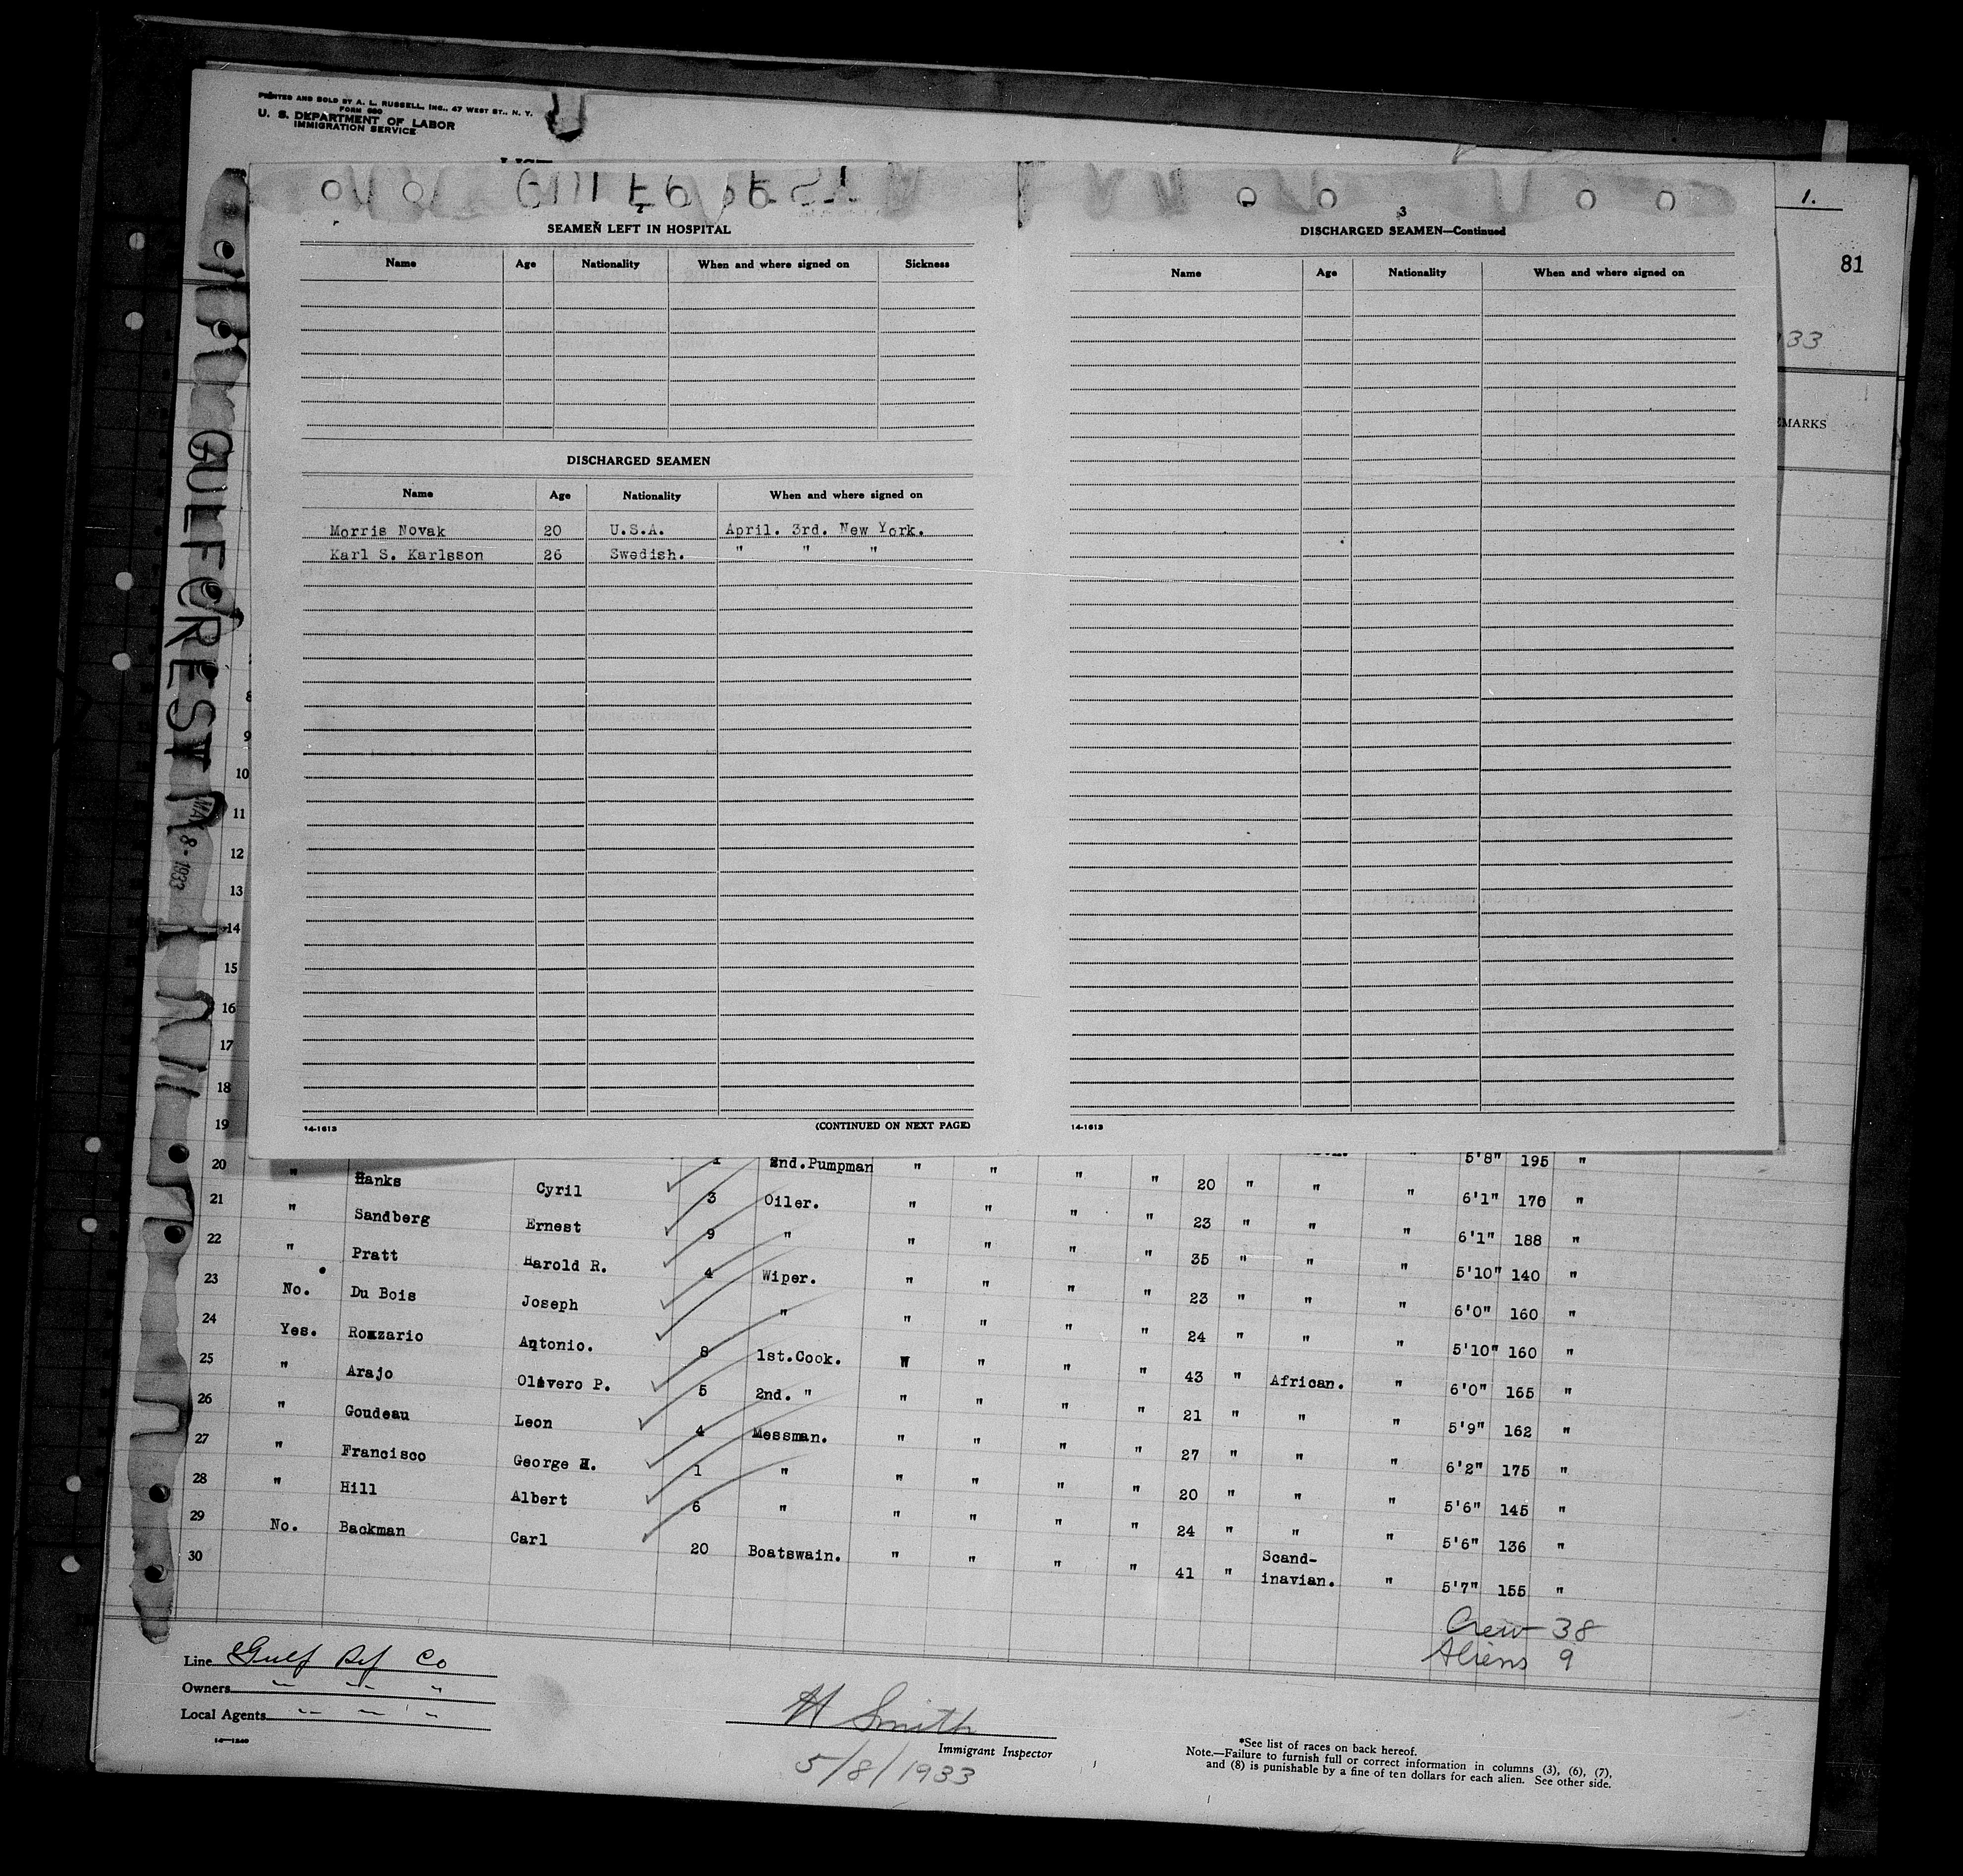 PRINTED AND SOLD BY A. L. RUSSELL, INC., 47 WEST ST., N. Y.
FORM 680
U. S. DEPARTMENT OF LABOR
IMMIGRATION SERVICE
1.
81
33
EMARKS
GULFCREST
MAY 8 - 1933
SEAMEN LEFT IN HOSPITAL
Name Age Nationality When and where signed on Sickness
DISCHARGED SEAMEN
Name Age Nationality When and where signed on
Morris Novak 20 U.S.A. April. 3rd. New York.
Karl S. Karlsson 26 Swedish. " " "
14-1613 (CONTINUED ON NEXT PAGE)
3
DISCHARGED SEAMEN—Continued
Name Age Nationality When and where signed on
14-1613
8
9
10
11
12
13
14
15
16
17
18
19
1 2nd.Pumpman " " " " 20 " " " 5'8" 195 "
20 " Hanks Cyril 3 Oiler. " " " " 23 " " " 6'1" 170 "
21 " Sandberg Ernest 9 " " " " " 35 " " " 6'1" 188 "
22 " Pratt Harold R. 4 Wiper. " " " " 23 " " " 5'10" 140 "
23 No. Du Bois Joseph " " " " " 24 " " " 6'0" 160 "
24 Yes. Rozzario Antonio. 8 1st.Cook. " " " " 43 " African. " 5'10" 160 "
25 " Arajo Olivero P. 5 2nd. " " " " " 21 " " " 6'0" 165 "
26 " Goudeau Leon 4 Messman. " " " " 27 " " " 5'9" 162 "
27 " Francisco George H. 1 " " " " " 20 " " " 6'2" 175 "
28 " Hill Albert 6 " " " " " 24 " " " 5'6" 145 "
29 No. Backman Carl 20 Boatswain. " " " " 41 " Scand-inavian. " 5'6" 136 "
30 5'7" 155 "
Crew 38
Aliens 9
Line Gulf Ref Co
Owners " " "
Local Agents " " "
H Smith
Immigrant Inspector
5/8/1933
*See list of races on back hereof.
Note.—Failure to furnish full or correct information in columns (3), (6), (7),
and (8) is punishable by a fine of ten dollars for each alien. See other side.